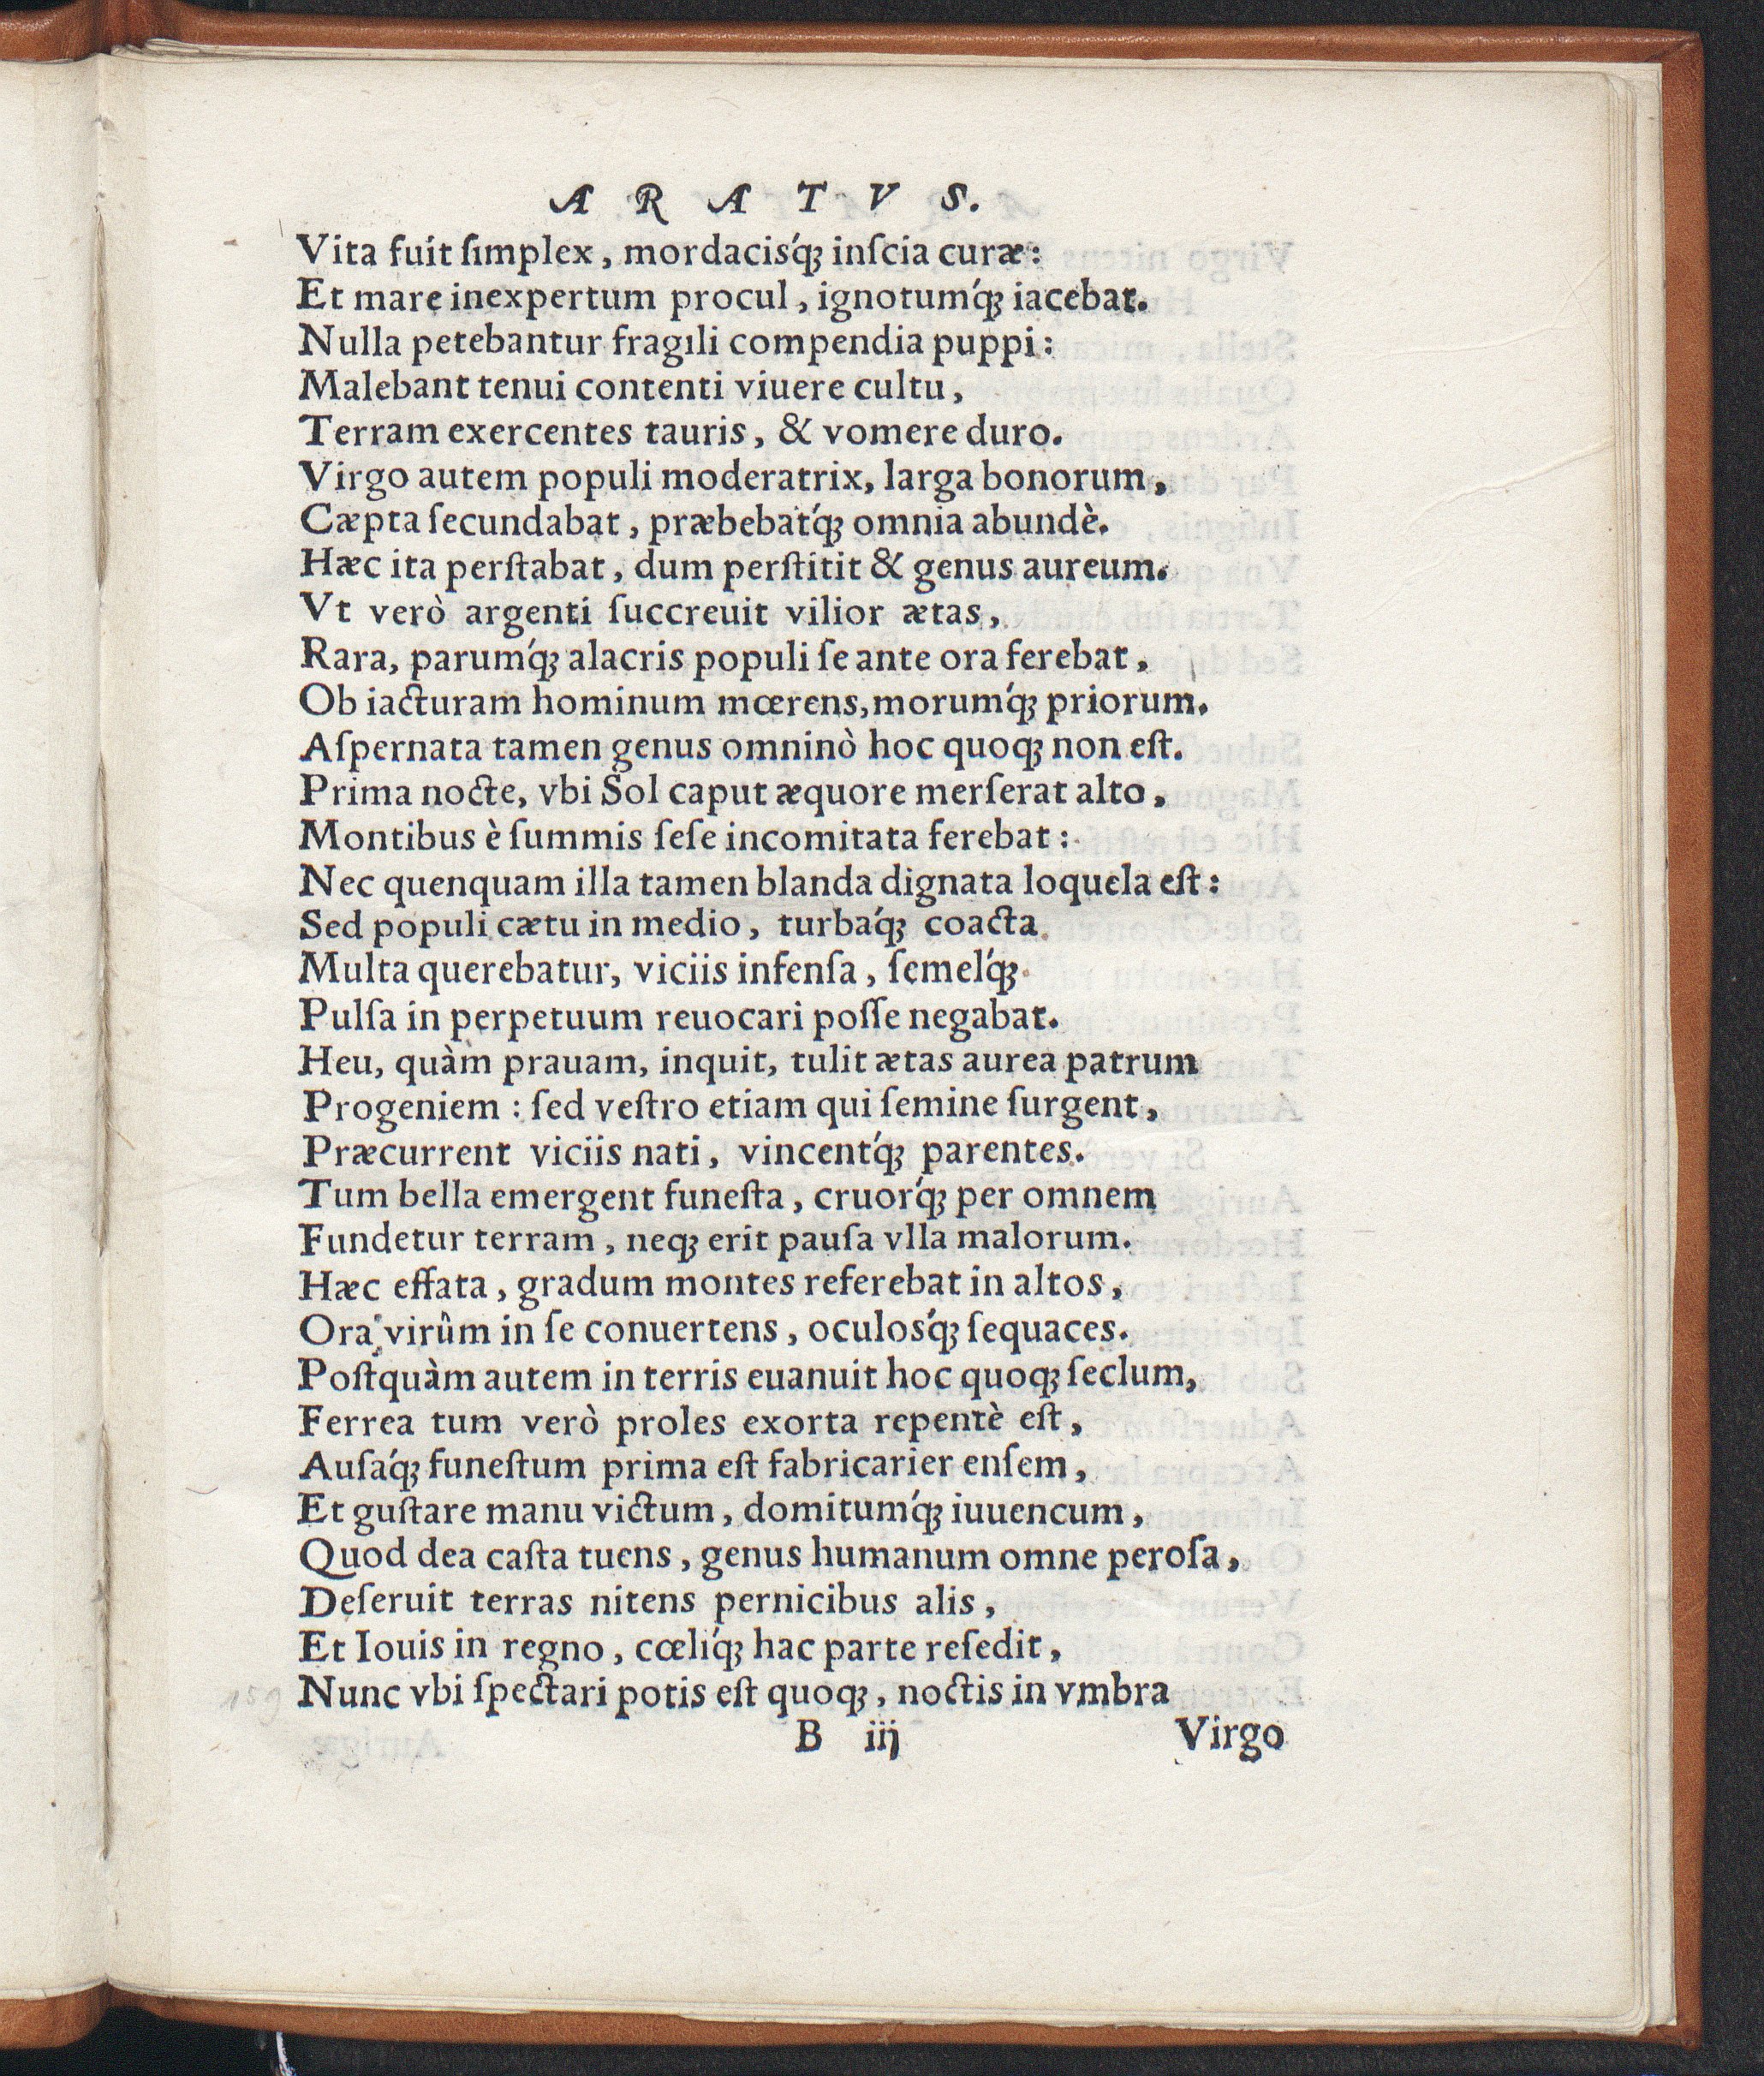 A R A T V S.
Vita fuit ſimplex, mordacisq́ꝫ inſcia curæ:
Et mare inexpertum procul, ignotumq́ꝫ iacebat.
Nulla petebantur fragili compendia puppi:
Malebant tenui contenti viuere cultu,
Terram exercentes tauris, & vomere duro.
Virgo autem populi moderatrix, larga bonorum,
Cæpta ſecundabat, præbebatq́ꝫ omnia abundè.
Hæc ita perſtabat, dum perſtitit & genus aureum.
Vt verò argenti ſuccreuit vilior ætas,
Rara, parumq́ꝫ alacris populi ſe ante ora ferebat,
Ob iacturam hominum mœrens, morumq́ꝫ priorum.
Aſpernata tamen genus omninò hoc quoqꝫ non eſt.
Prima nocte, vbi Sol caput æquore merſerat alto,
Montibus è ſummis ſeſe incomitata ferebat:
Nec quenquam illa tamen blanda dignata loquela eſt:
Sed populi cætu in medio, turbaq́ꝫ coacta
Multa querebatur, viciis infenſa, ſemelq́ꝫ
Pulſa in perpetuum reuocari poſſe negabat.
Heu, quàm prauam, inquit, tulit ætas aurea patrum
Progeniem: ſed veſtro etiam qui ſemine ſurgent,
Præcurrent viciis nati, vincentq́ꝫ parentes.
Tum bella emergent funeſta, cruorq́ꝫ per omnem
Fundetur terram, neqꝫ erit pauſa vlla malorum.
Hæc effata, gradum montes referebat in altos,
Ora virûm in ſe conuertens, oculosq́ꝫ ſequaces.
Poſtquàm autem in terris euanuit hoc quoqꝫ ſeclum,
Ferrea tum verò proles exorta repentè eſt,
Auſaq́ꝫ funeſtum prima eſt fabricarier enſem,
Et guſtare manu victum, domitumq́ꝫ iuuencum,
Quod dea caſta tuens, genus humanum omne peroſa,
Deſeruit terras nitens pernicibus alis,
Et Iouis in regno, cœliq́ꝫ hac parte reſedit,
159 Nunc vbi ſpectari potis eſt quoqꝫ, noctis in vmbra
B iij Virgo